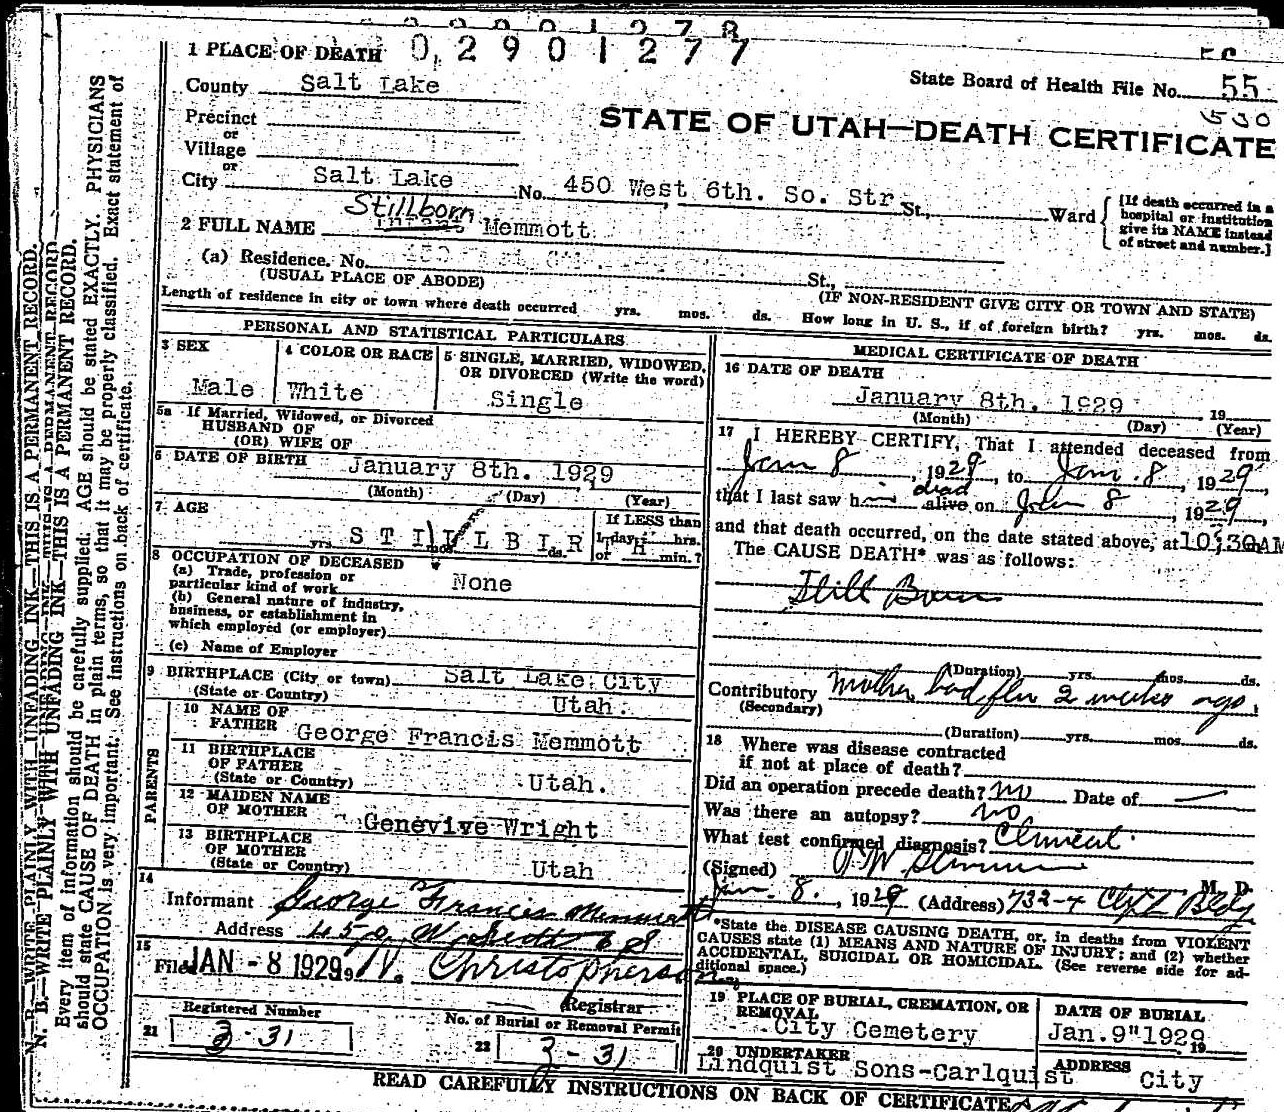 1 PLACE OF DEATH 0,2901277
State Board of Health File No. 55
530
County Salt Lake
STATE OF UTAH—DEATH CERTIFICATE
Precinct
or
Village
or
City Salt Lake No. 450 West 6th. So. Str. St., Ward
[If death occurred in a hospital or institution give its NAME instead of street and number.]
Stillborn
2 FULL NAME Memmott
(a) Residence. No. St.,
(USUAL PLACE OF ABODE) (IF NON-RESIDENT GIVE CITY OR TOWN AND STATE)
Length of residence in city or town where death occurred yrs. mos. ds. How long in U. S., if of foreign birth? yrs. mos. ds.
PERSONAL AND STATISTICAL PARTICULARS
3 SEX 4 COLOR OR RACE 5 SINGLE, MARRIED, WIDOWED,
OR DIVORCED (Write the word)
Male White Single
5a If Married, Widowed, or Divorced
HUSBAND OF
(OR) WIFE OF
6 DATE OF BIRTH January 8th. 1929
(Month) (Day) (Year)
7 AGE If LESS than
yrs. mos. ds. 1 day hrs.
or min.?
S T I L L B I R T H
8 OCCUPATION OF DECEASED
(a) Trade, profession or
particular kind of work None
(b) General nature of industry,
business, or establishment in
which employed (or employer)
(c) Name of Employer
9 BIRTHPLACE (City or town) Salt Lake City
(State or Country) Utah.
PARENTS
10 NAME OF
FATHER George Francis Memmott
11 BIRTHPLACE
OF FATHER
(State or Country) Utah.
12 MAIDEN NAME
OF MOTHER Genevive Wright
13 BIRTHPLACE
OF MOTHER
(State or Country) Utah
14
Informant George Francis Memmott
Address 450 W 6 S
15
Filed JAN - 8 1929 Christopherson
Registrar
Registered Number No. of Burial or Removal Permit
21 3-31 22 3-31
MEDICAL CERTIFICATE OF DEATH
16 DATE OF DEATH
January 8th. 1929 19
(Month) (Day) (Year)
17 I HEREBY CERTIFY, That I attended deceased from
Jan 8, 1929, to Jan. 8, 1929,
dead
that I last saw him alive on Jan 8, 1929,
and that death occurred, on the date stated above, at 10:30AM
The CAUSE DEATH* was as follows:
Still Born
(Duration) yrs. mos. ds.
Contributory Mother had flu 2 weeks ago.
(Secondary)
(Duration) yrs. mos. ds.
18 Where was disease contracted
if not at place of death?
Did an operation precede death? no Date of —
Was there an autopsy? no
What test confirmed diagnosis? Clinical.
(Signed) M. D.
Jan. 8., 1929 (Address) 732-4 Clift Bldg
*State the DISEASE CAUSING DEATH, or, in deaths from VIOLENT
CAUSES state (1) MEANS AND NATURE OF INJURY; and (2) whether
ACCIDENTAL, SUICIDAL OR HOMICIDAL. (See reverse side for additional space.)
19 PLACE OF BURIAL, CREMATION, OR REMOVAL DATE OF BURIAL
City Cemetery Jan. 9" 1929 19
20 UNDERTAKER ADDRESS
Lindquist Sons-Carlquist City
READ CAREFULLY INSTRUCTIONS ON BACK OF CERTIFICATE
N. B.—WRITE PLAINLY WITH UNFADING INK—THIS IS A PERMANENT RECORD.
N. B.—WRITE PLAINLY WITH UNFADING INK—THIS IS A PERMANENT RECORD.
Every item of information should be carefully supplied. AGE should be stated EXACTLY. PHYSICIANS
should state CAUSE OF DEATH in plain terms, so that it may be properly classified. Exact statement of
OCCUPATION is very important. See instructions on back of certificate.